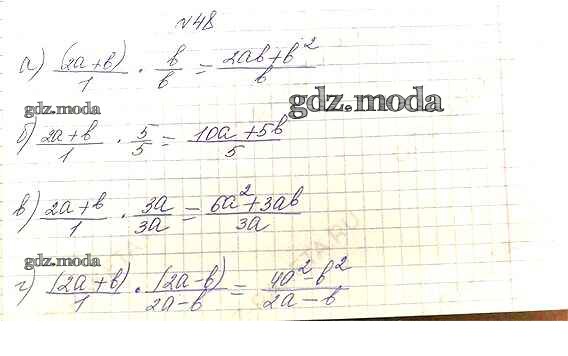 №48
а) (2a+b)/1 · b/b = 2ab+b²/b
gdz.moda
gdz.moda
б) 2a+b/1 · 5/5 = 10a+5b/5
в) 2a+b/1 · 3a/3a = 6a²+3ab/3a
gdz.moda
г) (2a+b)/1 · (2a-b)/2a-b = 4a²-b²/2a-b